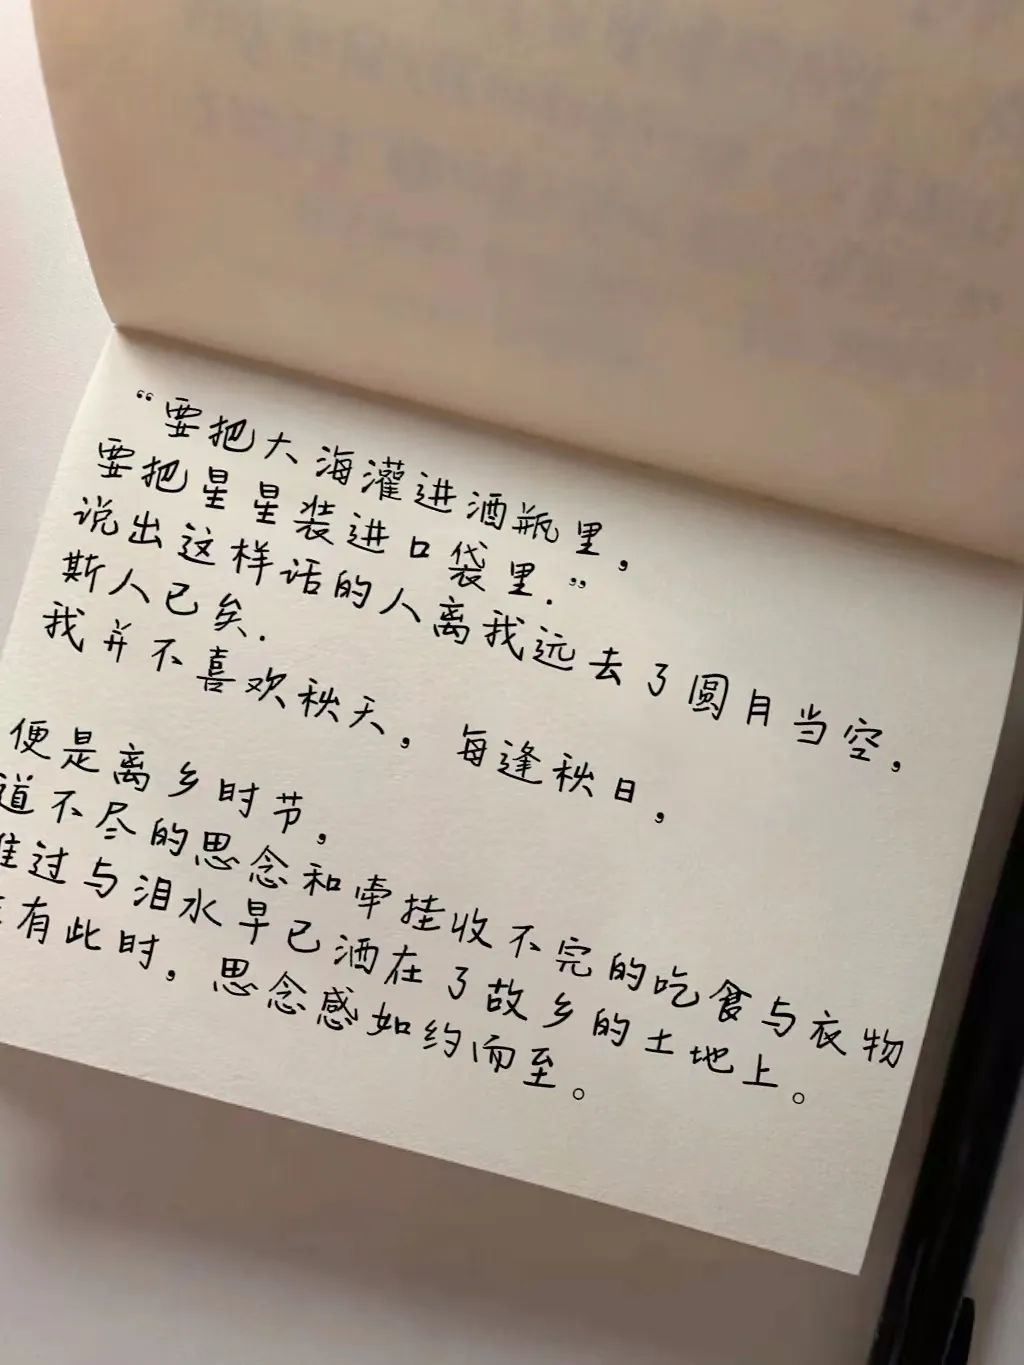 “要把大海灌进酒瓶里，
要把星星装进口袋里.”
说出这样话的人离我远去了圆月当空，
斯人已矣.
我并不喜欢秋天，每逢秋日，
便是离乡时节，
道不尽的思念和牵挂收不完的吃食与衣物
过与泪水早已洒在了故乡的土地上。
有此时，思念感如约而至。